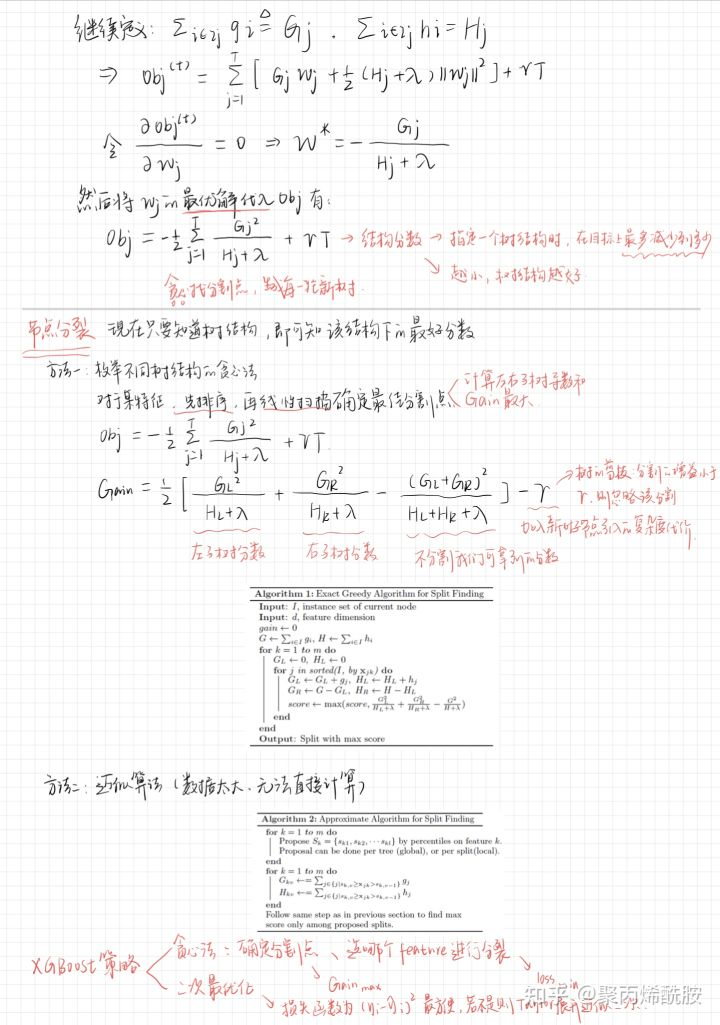 继续定义: Σ_{i∈Ij} g_i ≜ G_j . Σ_{i∈Ij} h_i = H_j
⇒ Obj^{(t)} = Σ_{j=1}^{T} [ G_j W_j + ½ (H_j+λ) ||W_j||² ] + γT
令 ∂obj^{(t)} / ∂W_j = 0 ⇒ W* = - G_j / (H_j + λ)
然后将 W_j 的最优解代入 Obj 有:
Obj = -½ Σ_{j=1}^{T} G_j² / (H_j+λ) + γT → 结构分数 → 指定一个树结构时, 在目标上最多减少到多少
↘ 越小, 树结构越好
贪心找分割点, 生成每一轮新树.
节点分裂 现在只要知道树结构, 即可知该结构下的最好分数
方法一: 枚举不同树结构的贪心法
对于某特征, 先排序, 再线性扫描确定最佳分割点 计算左右子树导数和
Gain 最大.
Obj = -½ Σ_{j=1}^{T} G_j² / (H_j+λ) + γT.
Gain = ½ [ G_L² / (H_L+λ) + G_R² / (H_R+λ) - (G_L+G_R)² / (H_L+H_R+λ) ] - γ
树的剪枝: 分割的增益小于
γ, 则忽略该分割
加入新叶子节点引入的复杂度代价
左子树分数 右子树分数 不分割我们可拿到的分数
Algorithm 1: Exact Greedy Algorithm for Split Finding
Input: I, instance set of current node
Input: d, feature dimension
gain ← 0
G ← Σ_{i∈I} g_i, H ← Σ_{i∈I} h_i
for k = 1 to m do
G_L ← 0, H_L ← 0
for j in sorted(I, by x_{jk}) do
G_L ← G_L + g_j, H_L ← H_L + h_j
G_R ← G − G_L, H_R ← H − H_L
score ← max(score, G_L²/(H_L+λ) + G_R²/(H_R+λ) − G²/(H+λ))
end
end
Output: Split with max score
方法二: 近似算法 (数据太大. 无法直接计算)
Algorithm 2: Approximate Algorithm for Split Finding
for k = 1 to m do
Propose S_k = {s_{k1}, s_{k2}, ··· s_{kl}} by percentiles on feature k.
Proposal can be done per tree (global), or per split(local).
end
for k = 1 to m do
G_{kv} ←= Σ_{j∈{j|s_{k,v}≥x_{jk}>s_{k,v−1}}} g_j
H_{kv} ←= Σ_{j∈{j|s_{k,v}≥x_{jk}>s_{k,v−1}}} h_j
end
Follow same step as in previous section to find max
score only among proposed splits.
XGBoost 策略
贪心法: 确定分割点、选哪个 feature 进行分裂
Gain max loss min
二次最优化
损失函数为 (y_i-ŷ_i)² 最方便, 若不是则 Taylor 展开
知乎 @聚丙烯酰胺